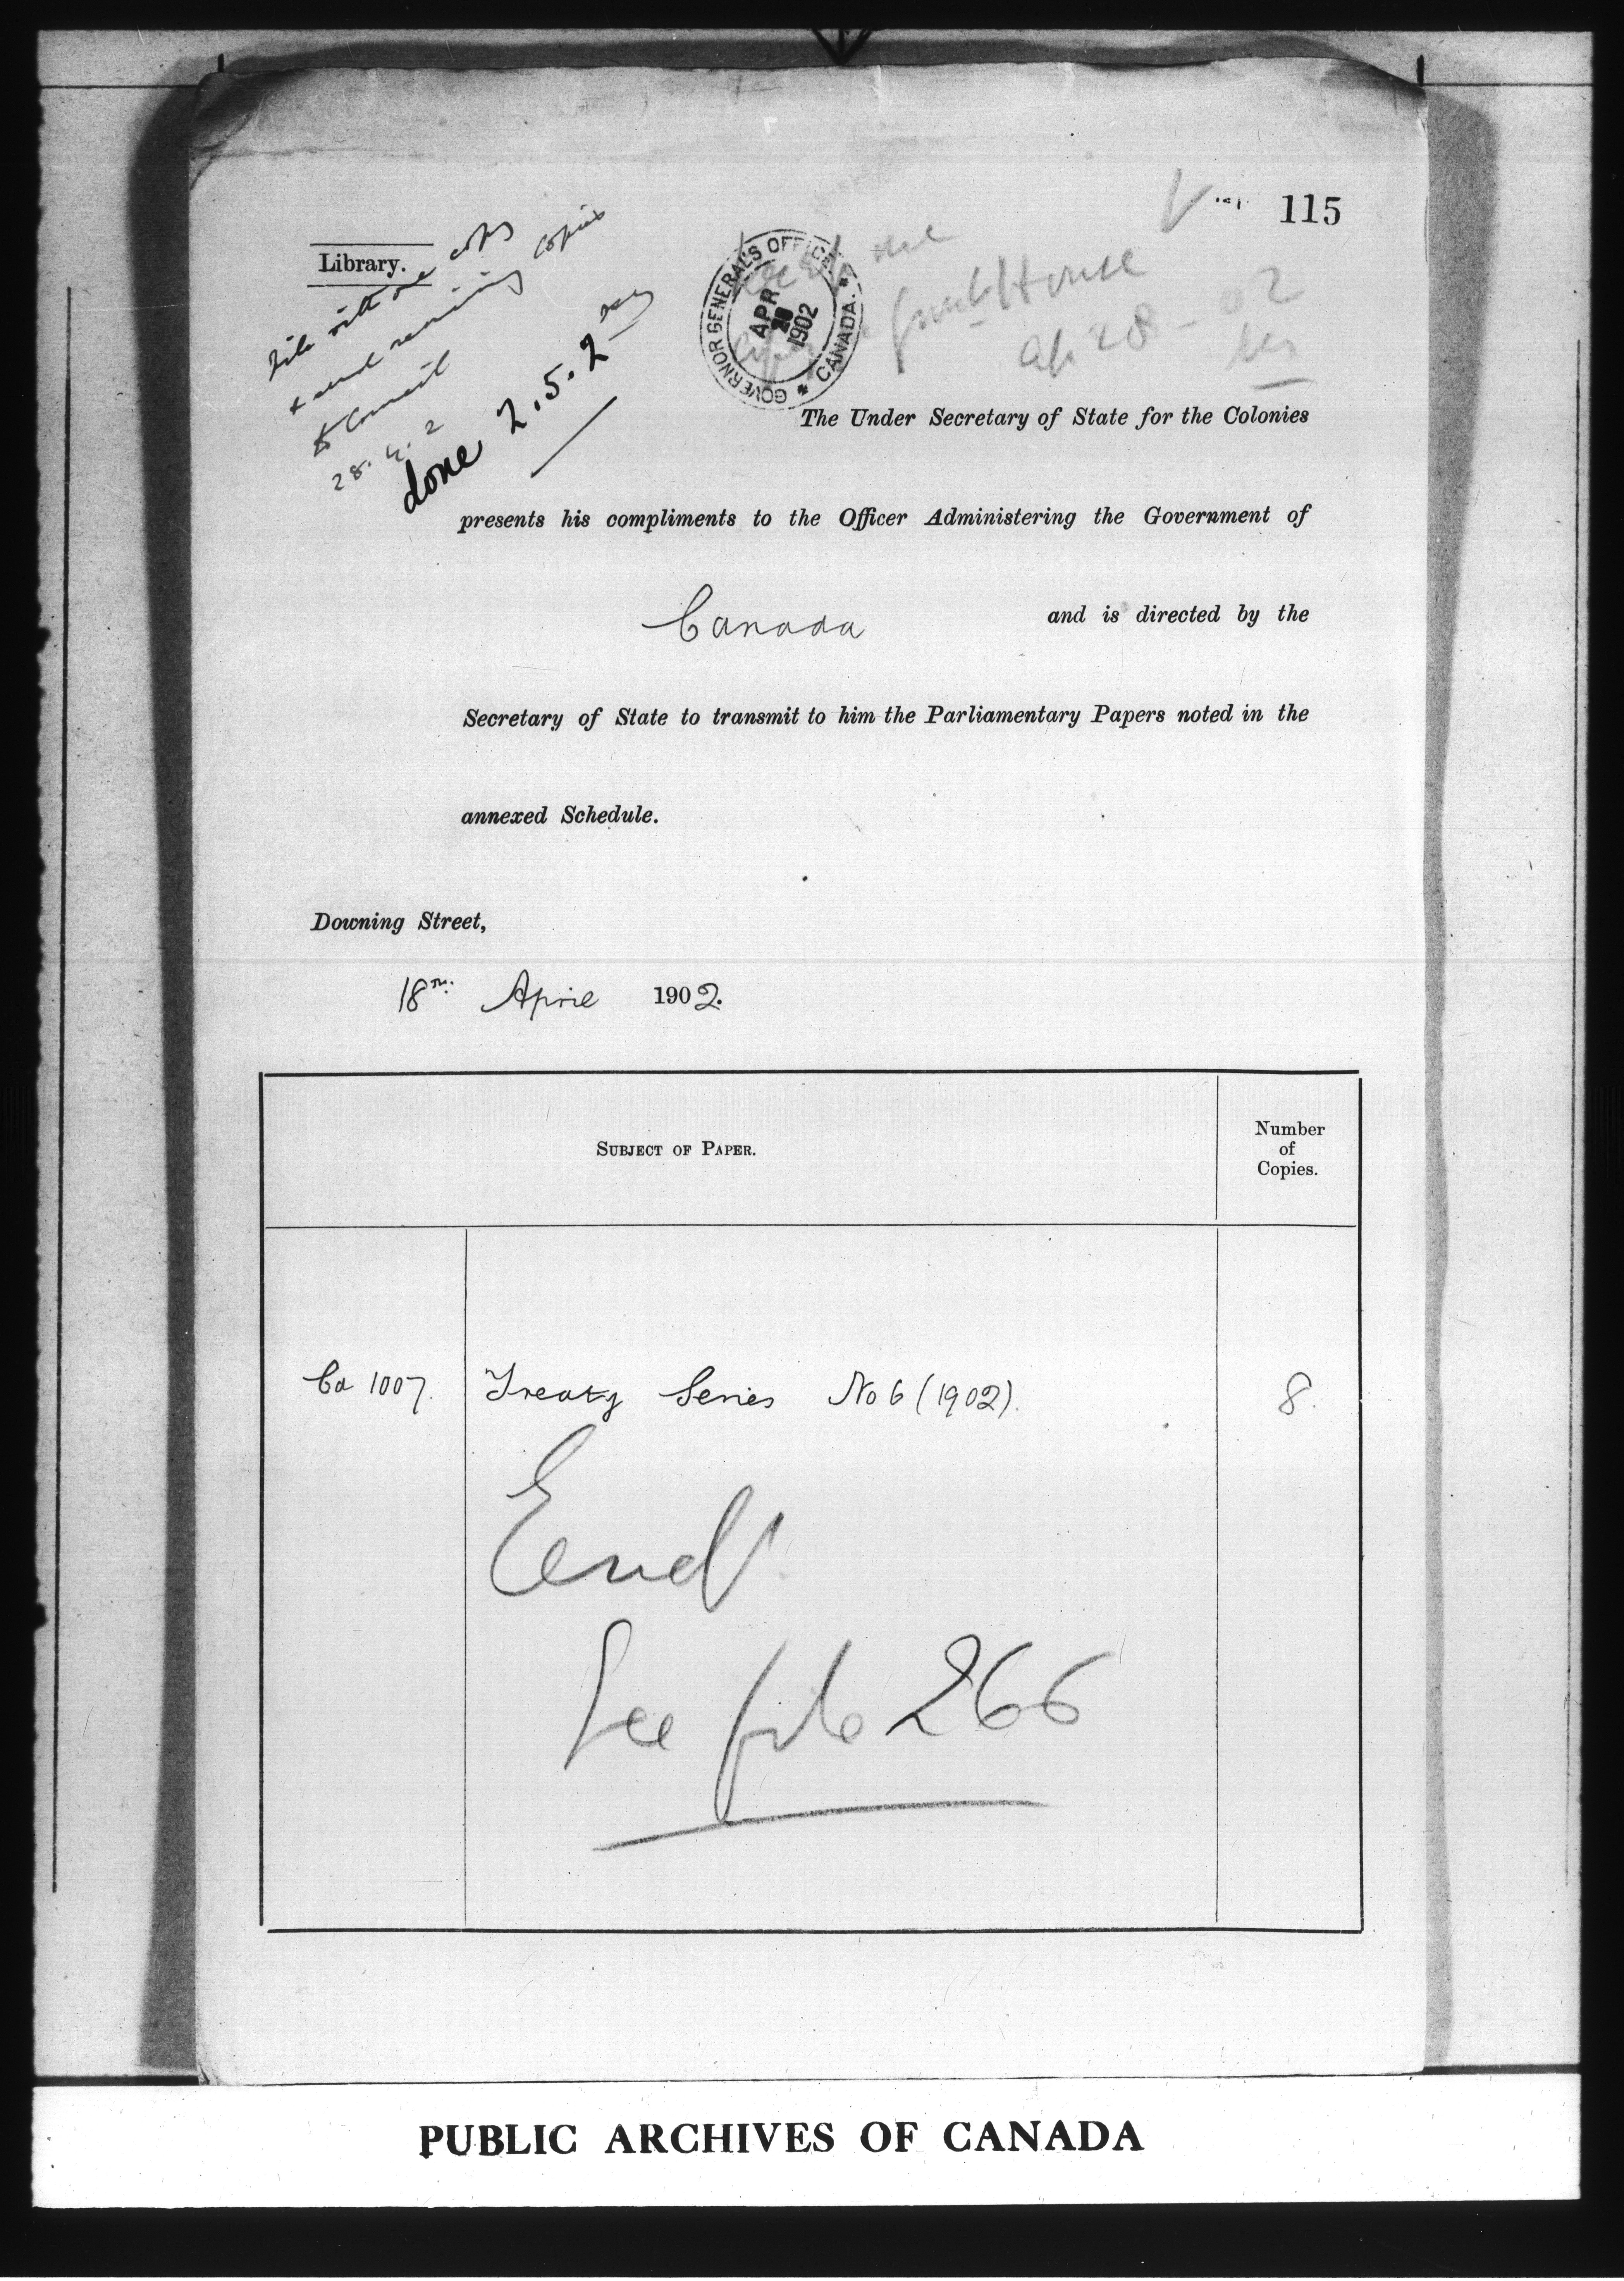 115
Library.
file with one copy
& send remaining copies
to Council
28.4.2
done 2.5.2
GOVERNOR GENERAL'S OFFICE
APR
1902
CANADA.
House
Ap 28-02
The Under Secretary of State for the Colonies
presents his compliments to the Officer Administering the Government of
Canada and is directed by the
Secretary of State to transmit to him the Parliamentary Papers noted in the
annexed Schedule.
Downing Street,
18th April 1902.
SUBJECT OF PAPER.
Number
of
Copies.
Cd 1007. Treaty Series No 6 (1902). 8.
See file 266
PUBLIC ARCHIVES OF CANADA